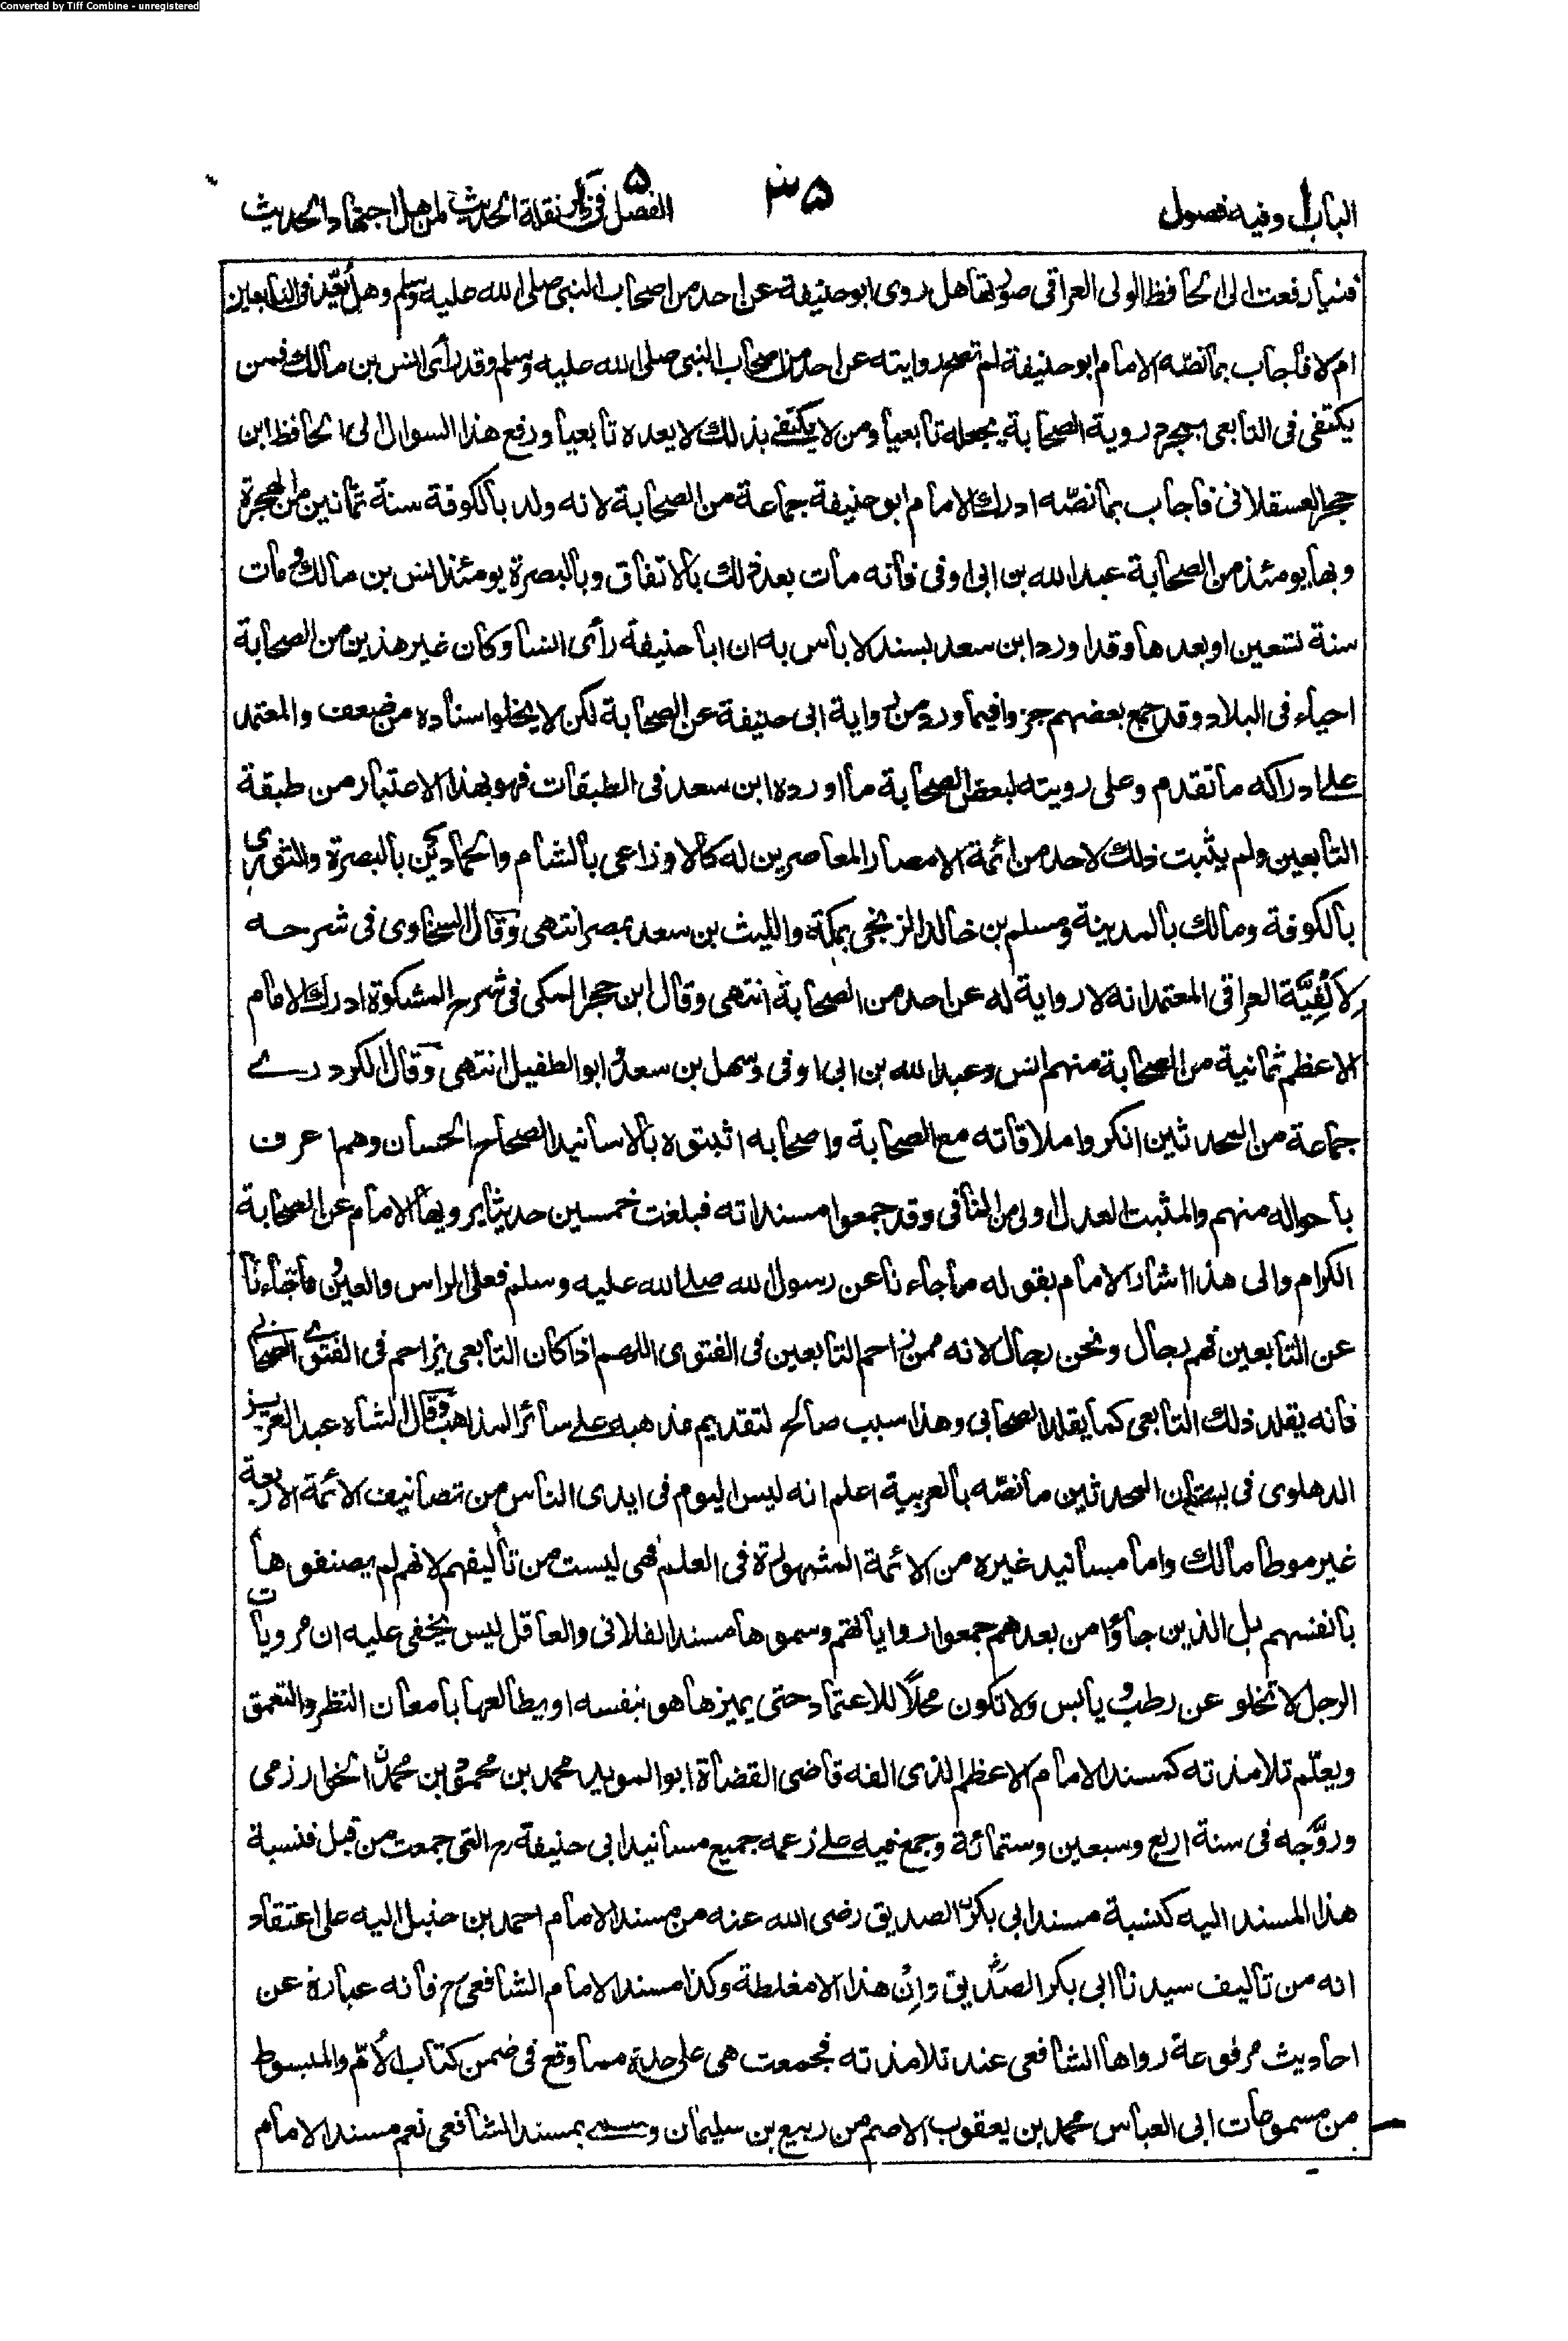 Converted by Tiff Combine - unregistered
الباب ا وفيه فصول
٣٥
الفصل ٥ فى ذكر نقلة الحديث لمن هل اجتهاد الحديث
فتيا رفعت الى الحافظ الولى العراقى صورتها هل روى ابو حنيفة عن احد من اصحاب النبى صلى الله عليه وسلم وهل يعد فى التابعين
ام لا فاجاب بما نصّه الامام ابو حنيفة لم تصح روايته عن احد من اصحاب النبى صلى الله عليه وسلم وقد رأى انس بن مالك فمن
يكتفى فى التابعى بمجرد روية الصحابة يجعله تابعيا ومن لا يكتفى بذلك لا يعده تابعيا ورفع هذا السوال الى الحافظ ابن
حجر العسقلانى فاجاب بما نصّه ادرك الامام ابو حنيفة جماعة من الصحابة لانه ولد بالكوفة سنة ثمانين من الهجرة
وبها يومئذ من الصحابة عبد الله بن ابى اوفى فانه مات بعد ذلك بالاتفاق وبالبصرة يومئذ انس بن مالك ومات
سنة تسعين او بعدها وقد اورد ابن سعد بسند لا باس به ان ابا حنيفة رأى انسا وكان غير هذين من الصحابة
احياء فى البلاد وقد جمع بعضهم جزوا فيما ورد من رواية ابى حنيفة عن الصحابة لكن لا يخلو اسناده من ضعف والمعتمد
على ادراكه ما تقدم وعلى رويته لبعض الصحابة ما اورده ابن سعد فى الطبقات فهو بهذا الاعتبار من طبقة
التابعين ولم يثبت ذلك لاحد من ائمة الامصار المعاصرين له كالاوزاعى بالشام والحمادين بالبصرة والثورى
بالكوفة ومالك بالمدينة ومسلم بن خالد الزنجى بمكة والليث بن سعد بمصر انتهى وقال السخاوى فى شرحه
لِاَلْفِيَّة العراقى المعتمد انه لا رواية له عن احد من الصحابة انتهى وقال ابن حجر المكى فى شرح المشكوة ادرك الامام
الاعظم ثمانية من الصحابة منهم انس وعبد الله بن ابى اوفى وسهل بن سعد وابو الطفيل انتهى وقال الكردرى
جماعة من المحدثين انكروا ملاقاته مع الصحابة واصحابه اثبتوه بالاسانيد الصحاح الحسان وهم اعرف
باحواله منهم والمثبت العدل اولى من النافى وقد جمعوا مسنداته فبلغت خمسين حديثا يرويها الامام عن الصحابة
الكرام والى هذا اشار الامام بقوله ما جاءنا عن رسول الله صلى الله عليه وسلم فعلى الراس والعين وما جاءنا
عن التابعين فهم رجال ونحن رجال لانه ممن زاحم التابعين فى الفتوى اللهم اذا كان التابعى يزاحم فى الفتوى الصحابى
فانه يقلد ذلك التابعى كما يقلد الصحابى وهذا سبب صالح لتقديم مذهبه على سائر المذاهب وقال الشاه عبد العزيز
الدهلوى فى بستان المحدثين ما نصّه بالعربية اعلم انه ليس اليوم فى ايدى الناس من تصانيف الائمة الاربعة
غير موطا مالك واما مسانيد غيره من الائمة المشهورة فى العلم فهى ليست من تأليفهم لانهم لم يصنفوها
بانفسهم بل الذين جاؤا من بعدهم جمعوا رواياتهم وسموها مسند الفلانى والعاقل ليس يخفى عليه ان مرويات
الرجل لا تخلو عن رطب ويابس ولا تكون محلاً للاعتماد حتى يميزها هو بنفسه او يطالعها بامعان النظر والتعمق
ويعلّم تلامذته كمسند الامام الاعظم الذى الفه قاضى القضاة ابو المويد محمد بن محمود بن محمد الخوارزمى
وروّجه فى سنة اربع وسبعين وستمائة وجمع فيه على زعمه جميع مسانيد ابى حنيفة رح التى جمعت من قبل فنسبة
هذا المسند اليه كنسبة مسند ابى بكر الصديق رضى الله عنه من مسند الامام احمد بن حنبل اليه على اعتقاد
انه من تاليف سيدنا ابى بكر الصدّيق وان هذا الا مغلطة وكذا مسند الامام الشافعى رح فانه عبارة عن
احاديث مرفوعة رواها الشافعى عند تلامذته فجمعت هى على حدة مما وقع فى ضمن كتاب الاُمّ والمبسوط
من مسموعات ابى العباس محمد بن يعقوب الاصم من ربيع بن سليمان وسمى بمسند الشافعى نعم مسند الامام